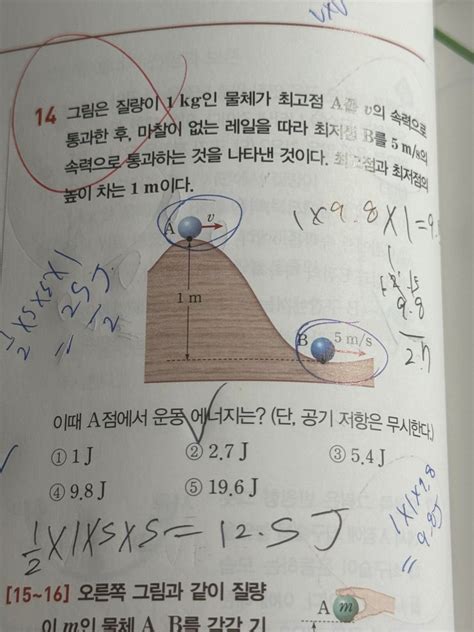 14 그림은 질량이 1 kg인 물체가 최고점 A를 v의 속력으로
통과한 후, 마찰이 없는 레일을 따라 최저점 B를 5 m/s의
속력으로 통과하는 것을 나타낸 것이다. 최고점과 최저점의
높이 차는 1 m이다.
A v
1×9.8×1=9.
1 m
B 5 m/s
9.8
이때 A점에서 운동 에너지는? (단, 공기 저항은 무시한다.)
① 1 J ② 2.7 J ③ 5.4 J
④ 9.8 J ⑤ 19.6 J
1/2×1×5×5=12.5 J
1×1×9.8
=9.8J
[15~16] 오른쪽 그림과 같이 질량
이 m인 물체 A, B를 각각 기
A m